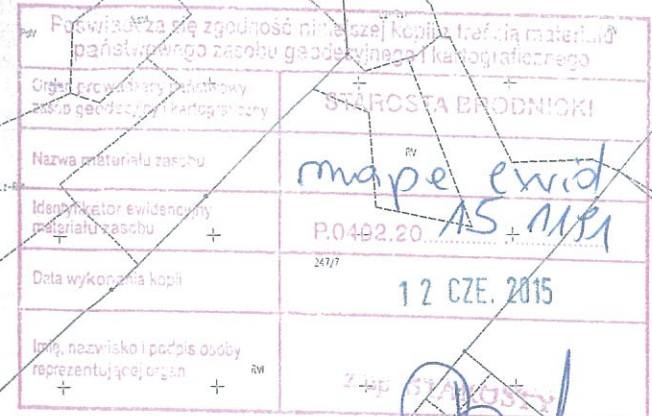 Poświadcza się zgodność niniejszej kopii z treścią materiału
państwowego zasobu geodezyjnego i kartograficznego
Organ prowadzący państwowy
zasób geodezyjny i kartograficzny
STAROSTA BRODNICKI
Nazwa materiału zasobu
mapa ewid
RV
Identyfikator ewidencyjny
materiału zasobu
P.0402.20 15.1191
247/7
Data wykonania kopii
12 CZE. 2015
Imię, nazwisko i podpis osoby
reprezentującej organ
RVI
Z up. STAROSTY